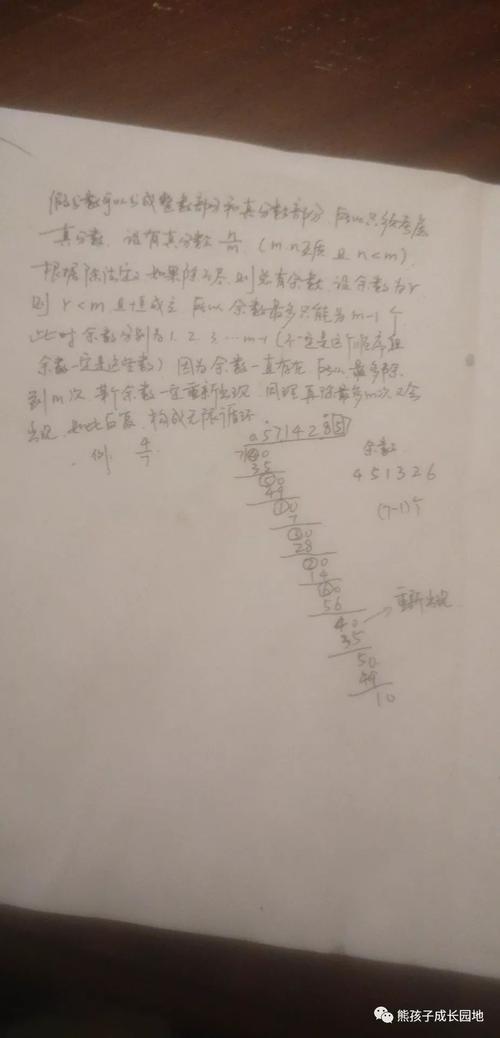 假分数可以写成整数部分和真分数部分 所以只须考虑
真分数. 设有真分数 n/m. (m.n互质 且 n<m).
根据除法定义 如果除不尽 则总有余数 设余数为r
则 r<m 且恒成立 所以 余数最多只能为 m-1 个
此时 余数分别为 1. 2. 3. … m-1 (不一定是这个顺序但
余数一定是这些数) 因为余数一直存在 所以 最多除
到m次 某个余数一定重新出现. 同理 再除最多m次 又会
出现. 如此反复. 构成无限循环.
例: 4/7
0.5714285
7
40
35
50
49
10
7
30
28
20
14
60
56
40
35
50
49
10
余数
4 5 1 3 2 6
(7-1)个
重新出现
熊孩子成长园地